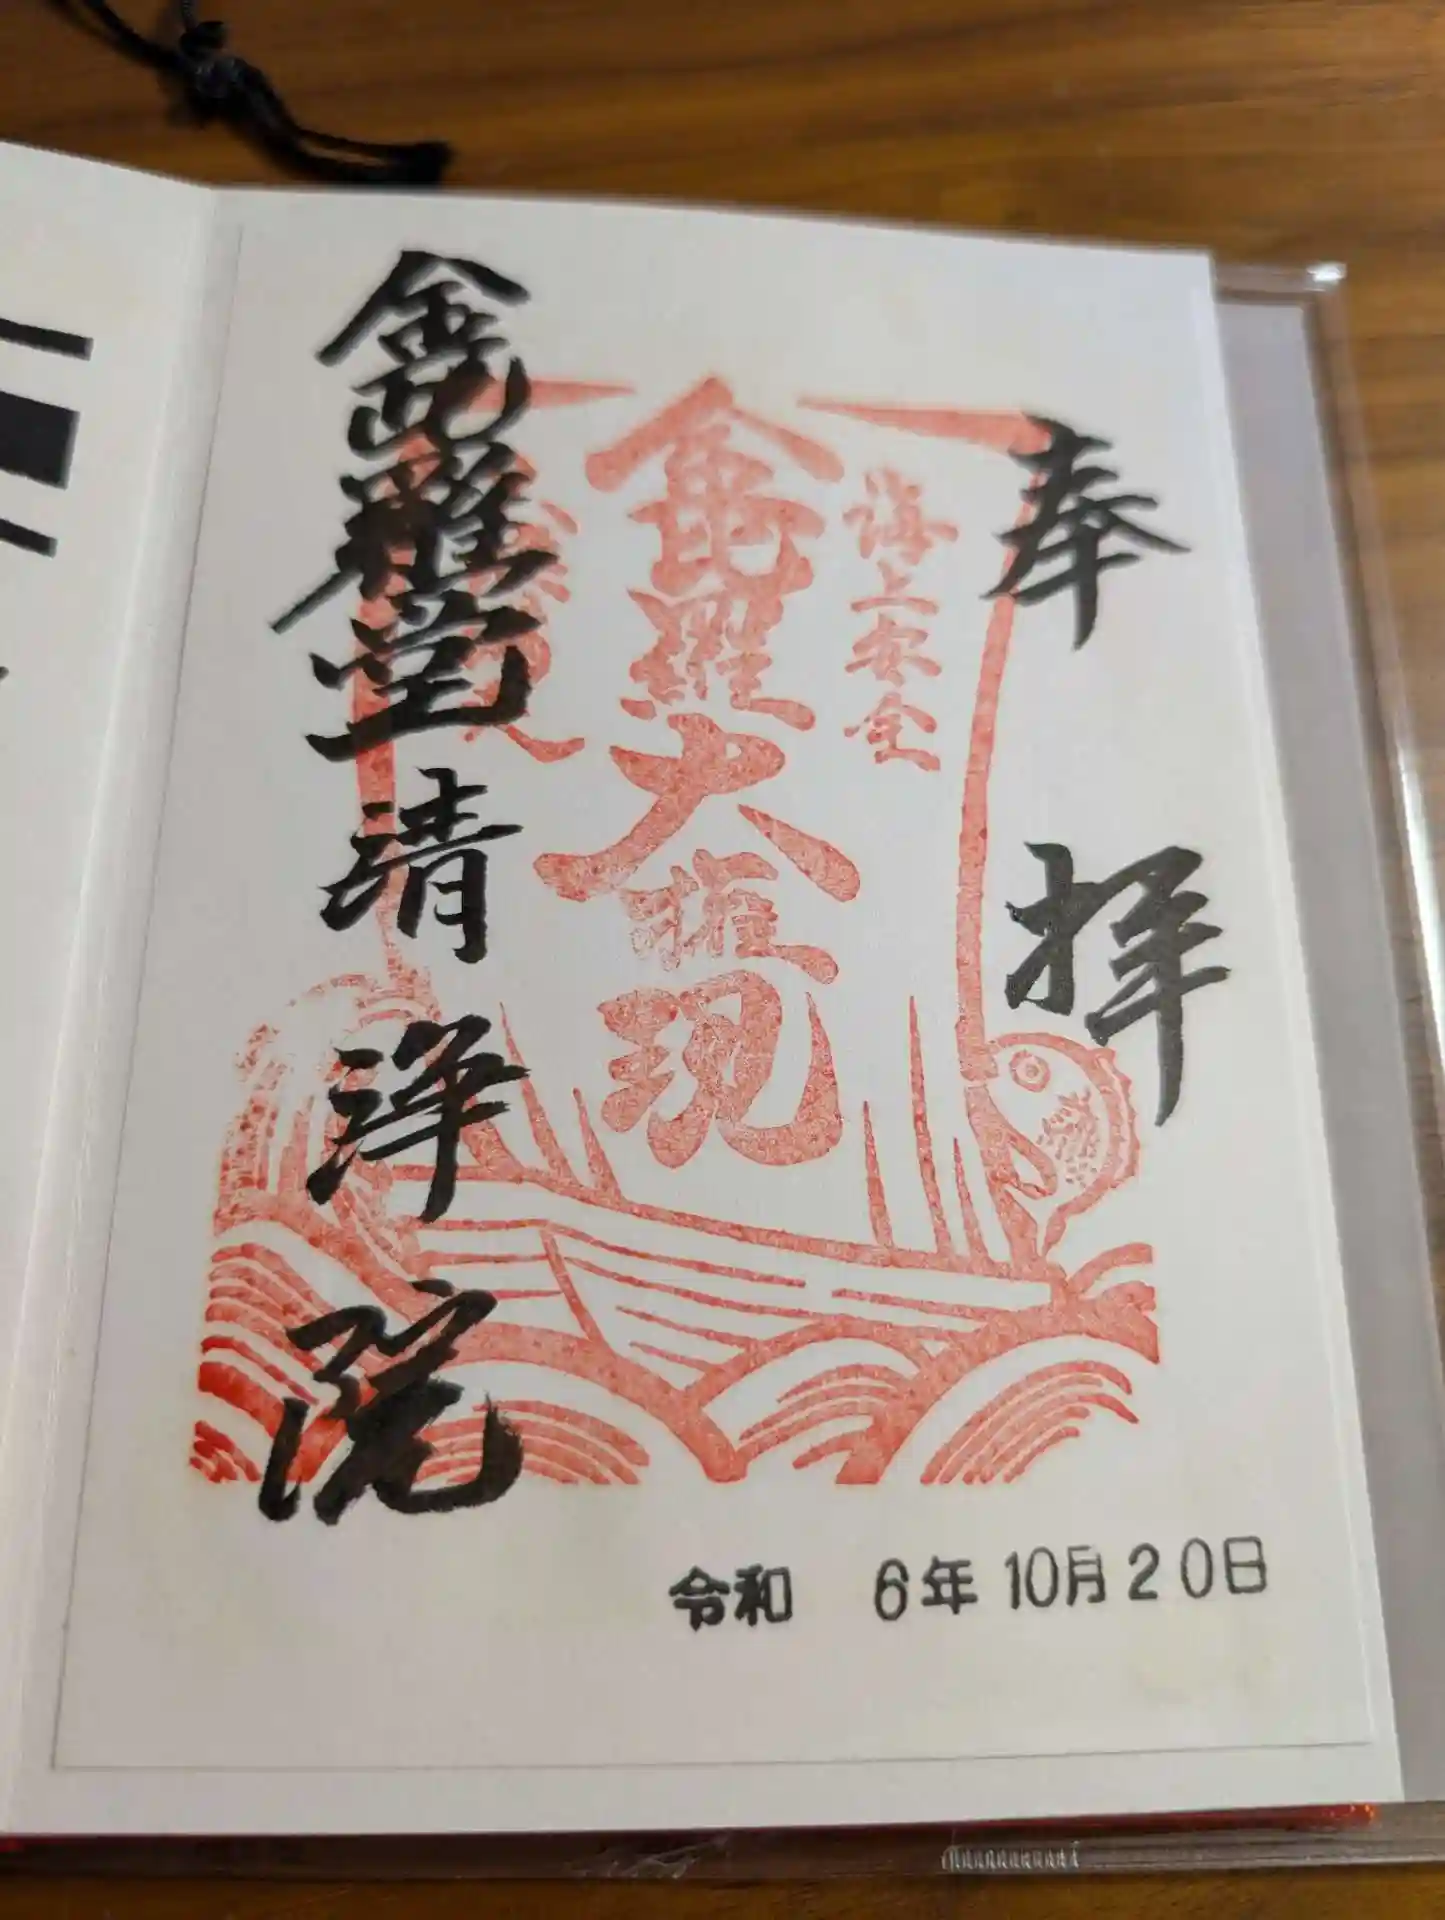 奉拝
海上安全
金毘羅大権現
金毘羅堂清浄院
令和 6年10月20日